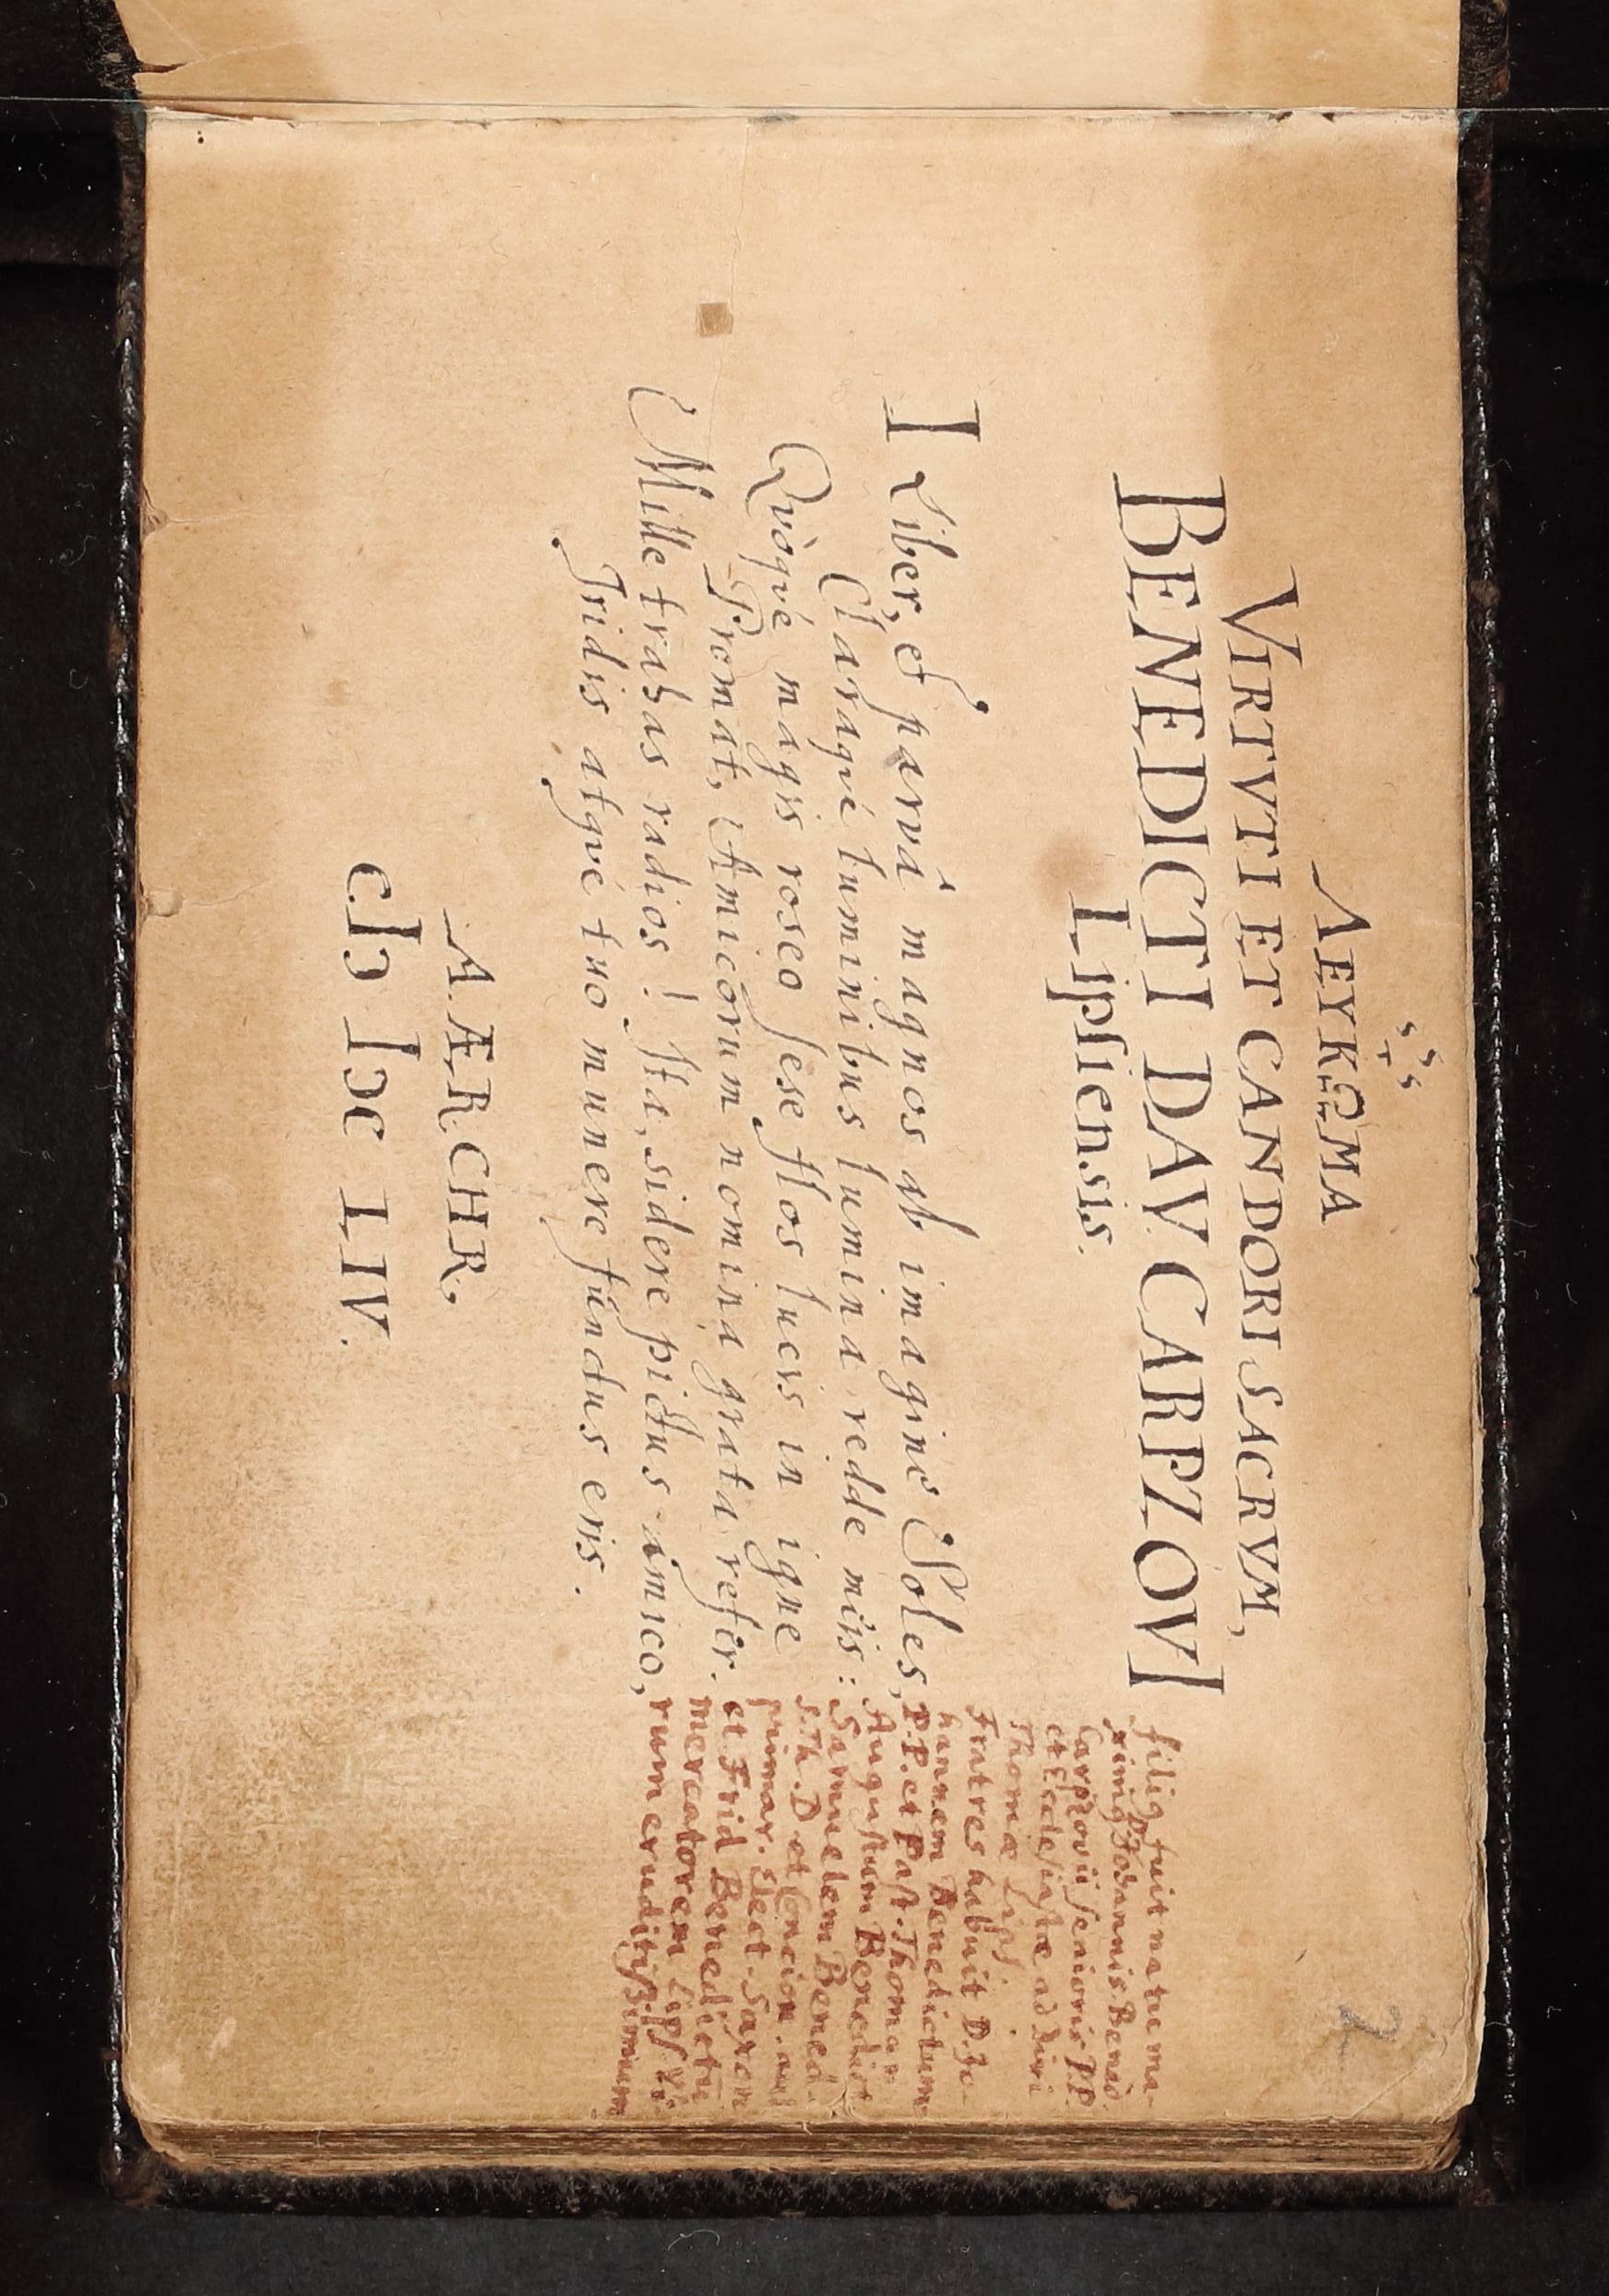 ΛΕΥΚΩΜΑ
VIRTVTI ET CANDORI SACRVM,
BENEDICTI DAV. CARPZOVI
Lipsiensis.
I Liber, et parvâ magnos ab imagine Soles,
Claraqvé luminibus lumina redde meis:
Qvòqvé magis roseo sese flos lucis in igne
Promat, Amicorum nomina grata refer.
Mille trahas radios! Ita, sidere pictus amico,
Iridis atqvé tuo munere functus eris.
A. ÆR. CHR.
cIↃ IↃc LIV.
filiq fuit natu ma-
ximq Johannis Bened.
Carpzovii senioris P.P.
et Ecclesiastæ ad Divi
Thomæ Lips.
Fratres habuit D. Jo-
hannem Benedictum
P.P. et Past. Thoman
Augustum Benedict
Samuelem Bened.
S. Th. D et Concion. aul
primar. Elect. Saxon
et Frid Benedictu
mercatorem Lips. Vi-
rum eruditissimum
2